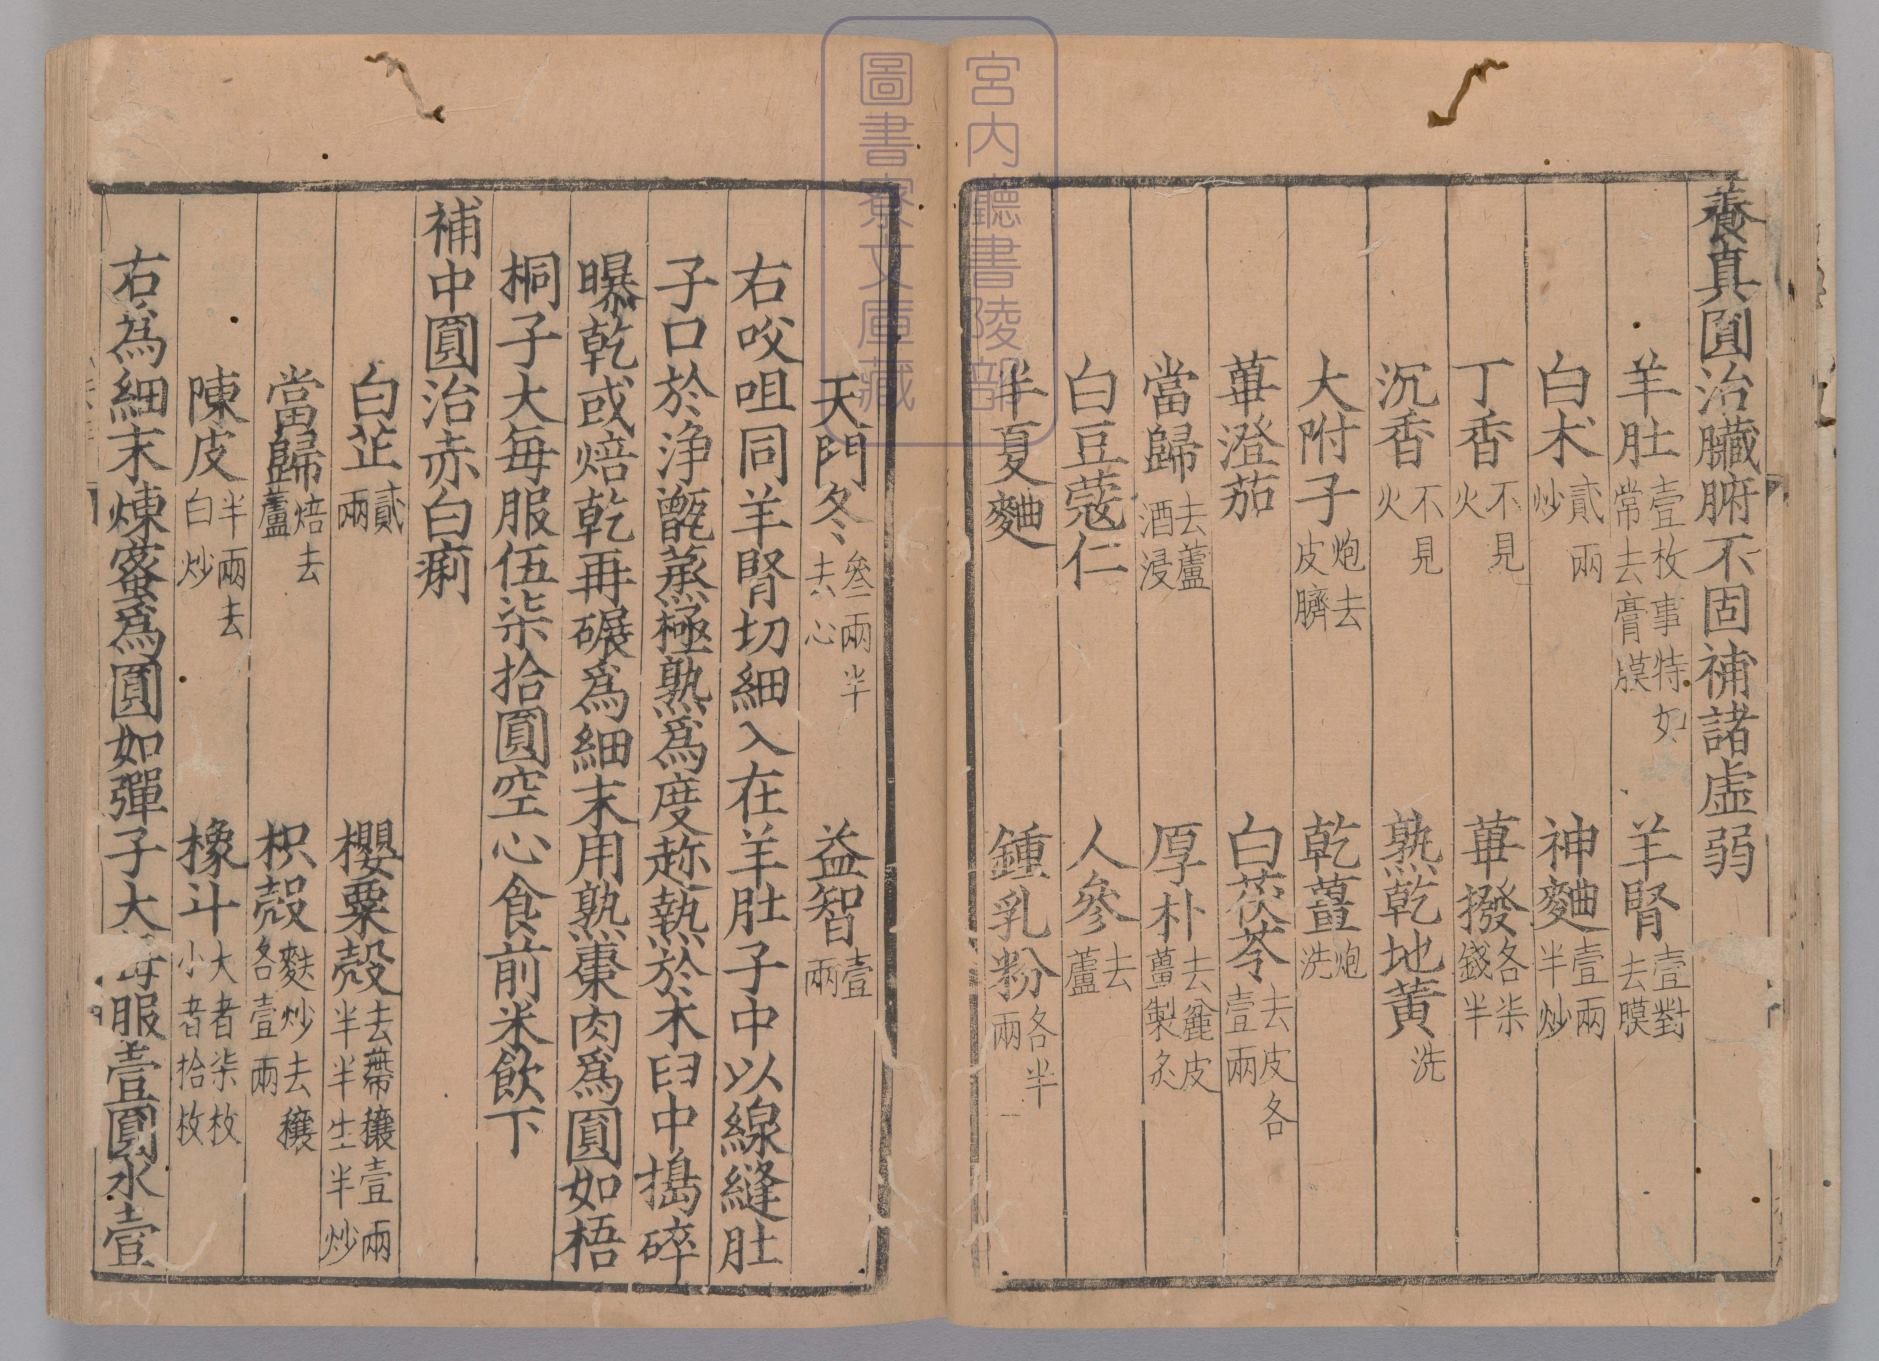 養真圓治臟腑不固補諸虛弱
羊肚壹枚事特如常去膏膜 羊腎壹對去膜
白朮貳兩炒 神麯壹兩半炒
丁香不見火 蓽撥各柒錢半
沉香不見火 熟乾地黃洗
大附子炮去皮臍 乾薑炮洗
蓽澄茄 白茯苓去皮各壹兩
當歸去蘆酒浸 厚朴去麄皮薑製炙
白豆蔻仁 人參去蘆
半夏麯 鍾乳粉各半兩
天門冬叄兩半去心 益智壹兩
右㕮咀同羊腎切細入在羊肚子中以線縫肚
子口於淨甑蒸極熟爲度趂熱於木臼中搗碎
曝乾或焙乾再碾爲細末用熟棗肉爲圓如梧
桐子大每服伍柒拾圓空心食前米飲下
補中圓治赤白痢
白芷貳兩 櫻粟殼去蔕穰壹兩半半生半炒
當歸焙去蘆 枳殼麩炒去穰各壹兩
陳皮半兩去白炒 橡斗大者柒枚小者拾枚
右爲細末煉蜜爲圓如彈子大每服壹圓水壹
宮内廳書陵部
圖書寮文庫藏